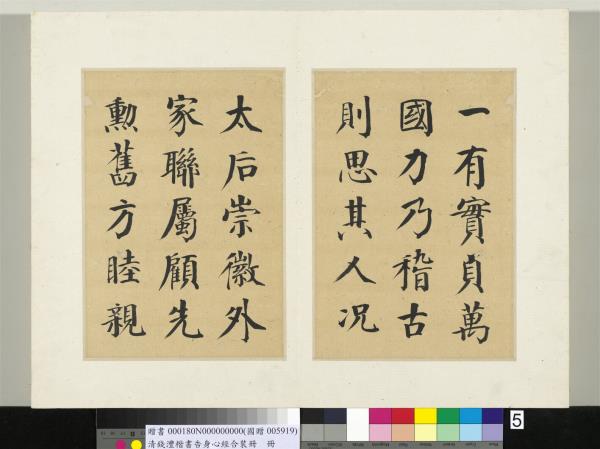 一有實貞萬
國力乃稽古
則思其人况
太后崇徽外
家聯屬顧先
勳舊方睦親
5
贈書 000180N000000000(國贈 005919)
清錢灃楷書告身心經合裝冊 冊